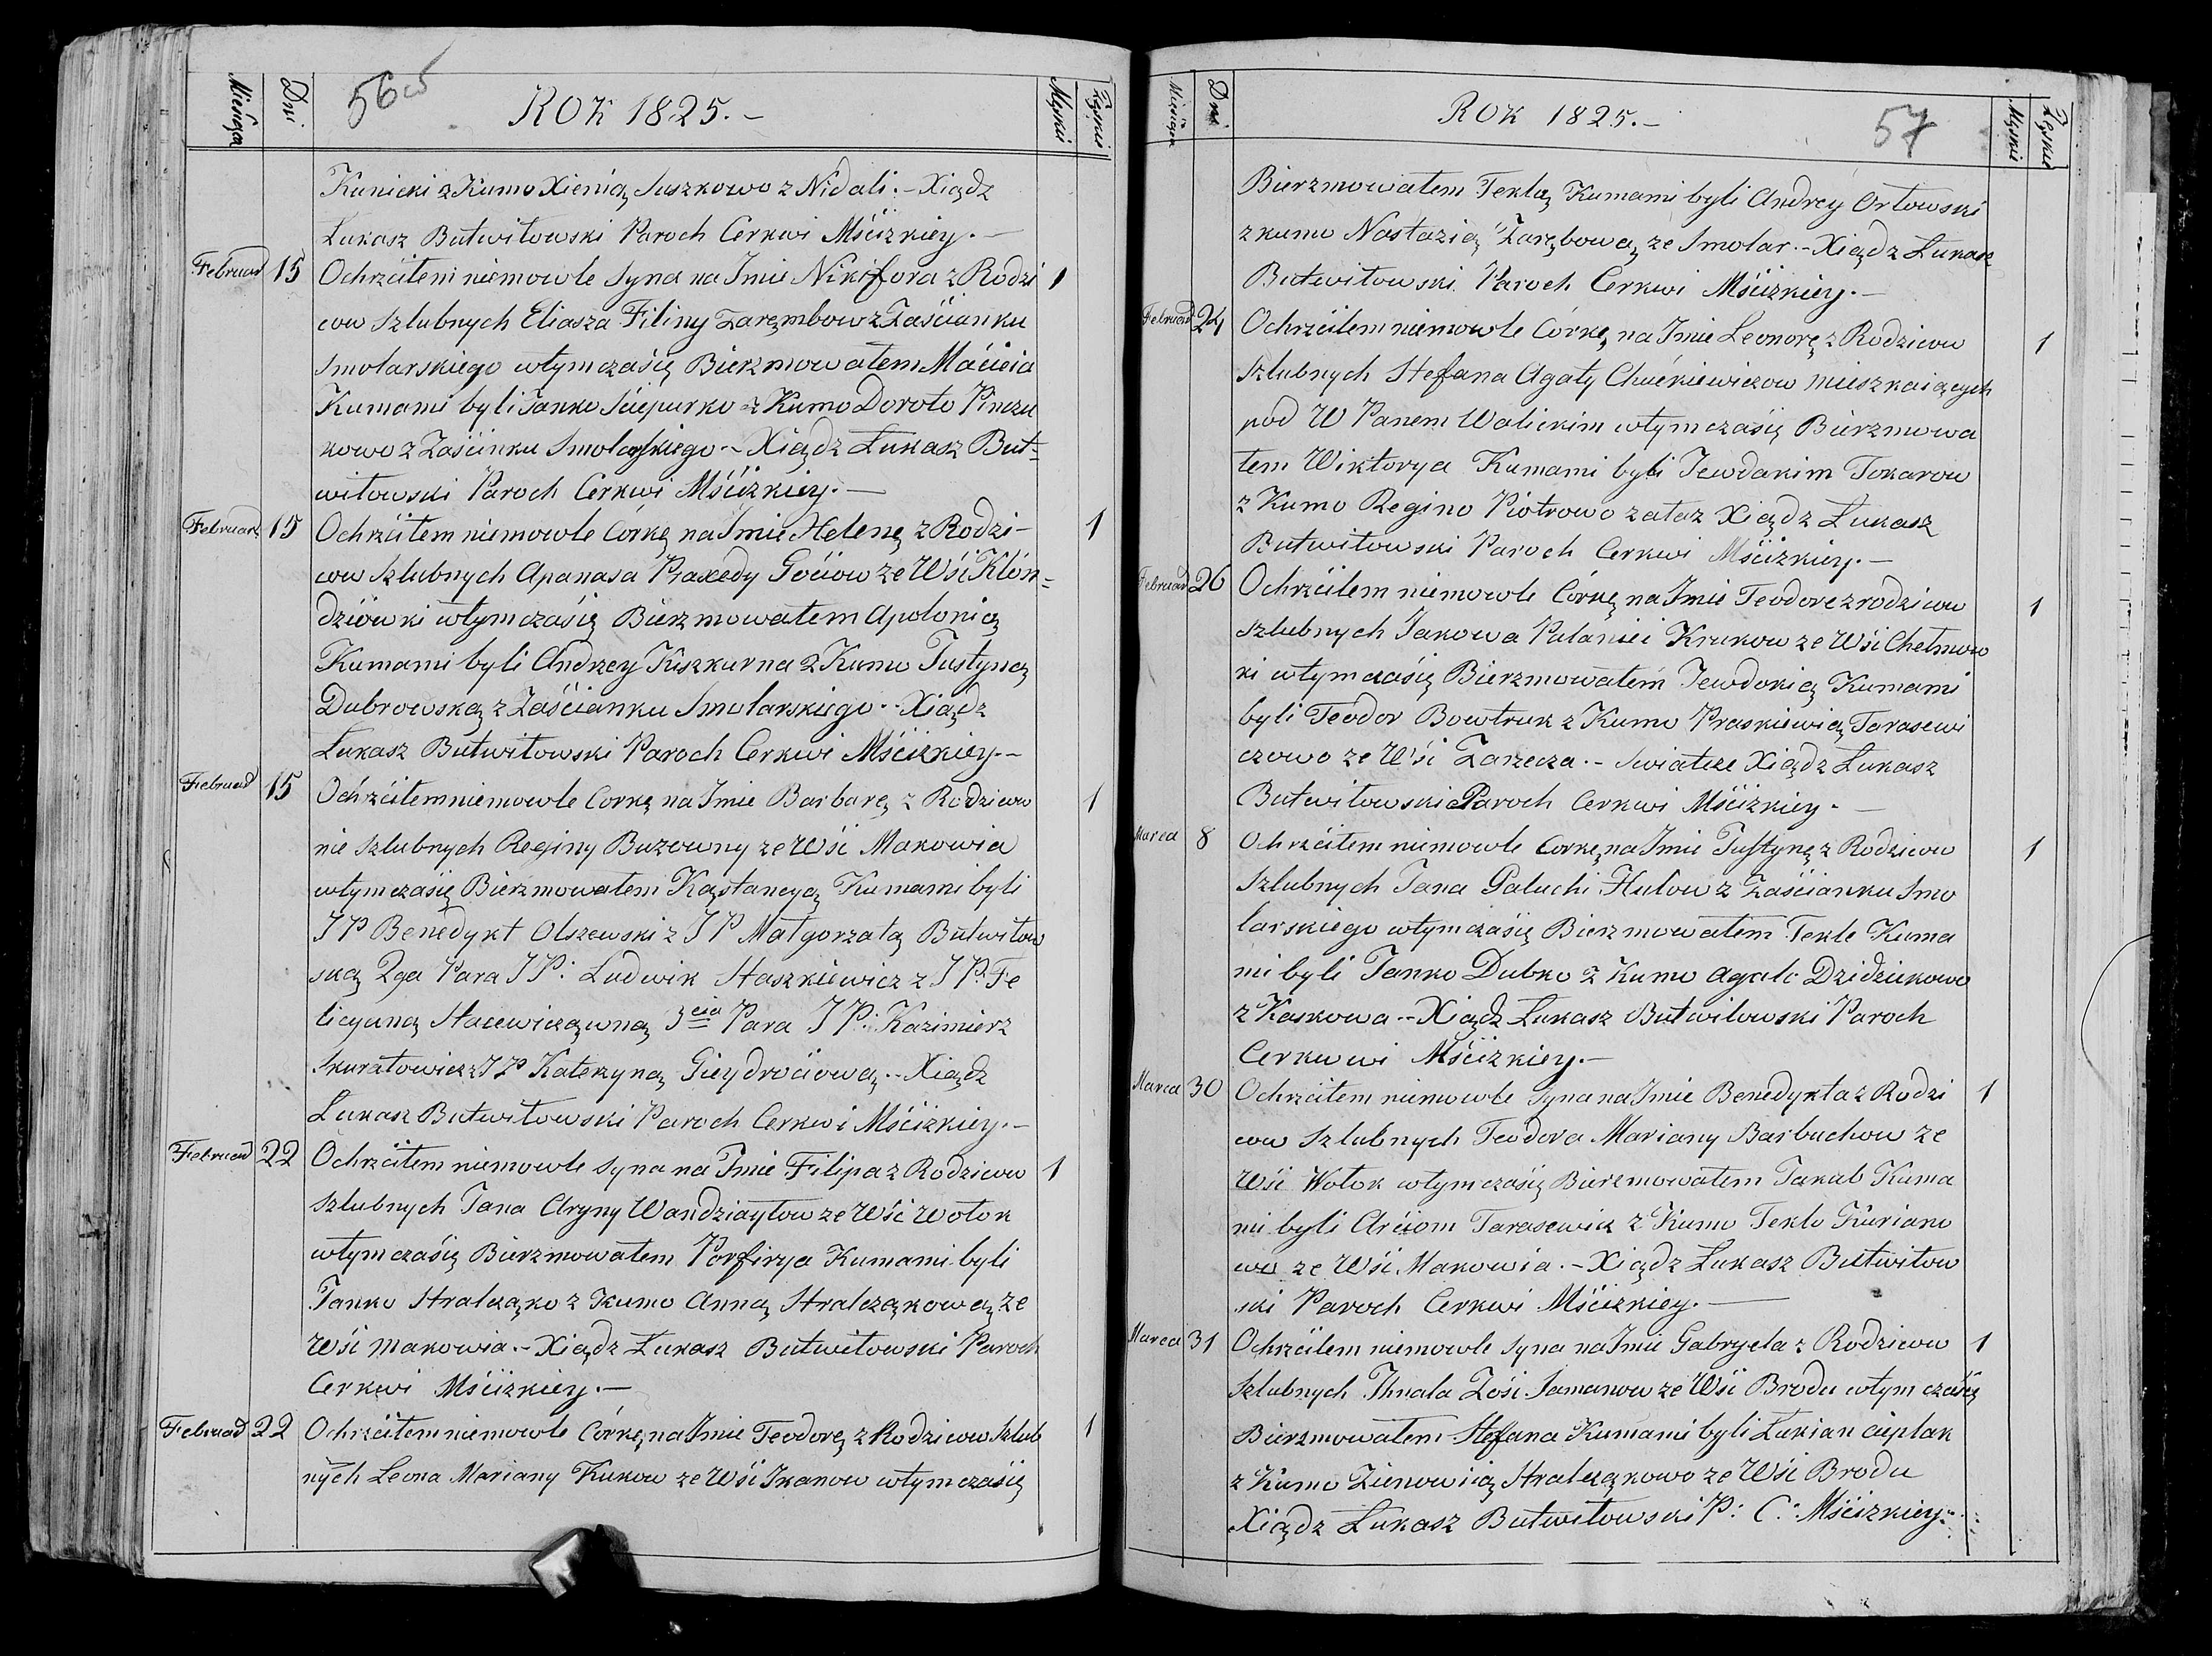 Miesięca Dni 56 ROK 1825.- Męskie Żęskie
Kunicki z Kumo Xienią Suszkowo z Nidali.- Xiądz
Łukasz Butwiłowski Paroch Cerkwi Mściżkiey.-
Februar 15 Ochrzciłem niemowle Syna na Imie Nikifora z Rodzi 1
cow Szlubnych Eliasza Filiny Zarębow z Zaścianku
Smolarskiego wtym czasię Bierzmowałem Macieia
Kumami byli Janko Sciepurko z Kumo Doroto Pinczu
kowo z Zaścinku Smolarskiego.- Xiądz Łukasz But=
wiłowski Paroch Cerkwi Mściżkiey.-
Februar 15 Ochrzciłem niemowle Córkę na Imie Helenę z Rodzi- 1
cow Szlubnych Apanasa Praxedy Gociow ze Wśi Klón=
dziówki wtym czasię Bierzmowałem Apolonią
Kumami byli Andrzey Kiszkurna z Kumo Justyną
Dubrowską z Zaścianku Smolarskiego.- Xiądz
Łukasz Butwiłowski Paroch Cerkwi Mściżkiey.-
Februar 15 Ochrzciłem niemowle Corkę na Imie Barbarę z Rodzicow 1
nie Szlubnych Reginy Buzowny ze Wśi Makowia
wtym czasię Bierzmowałem Kąstancyą Kumami byli
JP Benedykt Olszewski z JP Małgorzatą Butwiłow
ską 2ga Para JP: Ludwik Staszkiewicz z JP: Fe
licyaną Stacewicząwną 3cia Para JP: Kazimierz
Skuratowicz z JP Katerzyną Gieydrociową.- Xiądz
Łukasz Butwiłowski Paroch Cerkwi Mściżkiey.-
Februar 22 Ochrzciłem niemowle Syna na Imie Filipa z Rodzicow 1
Szlubnych Jana Aryny Wandziaytow ze Wśi Wołok
wtym czasię Bierzmowałem Porfirya Kumami byli
Janko Stralcząko z Kumo Anną Stralcząkową ze
Wśi Makowia.- Xiądz Łukasz Butwiłowski Paroch
Cerkwi Mściżkiey.-
Februar 22 Ochrzciłem niemowle Córkę na Imie Teodorę z Rodzicow Szlub 1
nych Leona Mariany Kukow ze Wśi Ikanow wtym czasię
Miesięca Dni ROK 1825.- 57 Męskie Żęskie
Bierzmowałem Teklą Kumami byli Andrey Orłowski
z kumo Nastazią Zarębową ze Smolar.- Xiądz Łukasz
Butwiłowski Paroch Cerkwi Mściżkiey.-
Februar 24 Ochrzciłem niemowle Córkę na Imie Leonorę z Rodzicow 1
Szlubnych Stefana Agaty Chućkiewiczow mieszkaiących
pod W Panem Walickim wtym czasię Bierzmowa
łem Wiktorya Kumami byli Jewdakim Tokarow
z Kumo Regino Piotrowo zataz Xiądz Łukasz
Butwiłowski Paroch Cerkwi Mściżkiey.-
Februar 26 Ochrzciłem niemowle Córkę na Imie Teodorę z rodzicow 1
szlubnych Jakowa Palanei Krukow ze Wśi Chełmow
ki wtym czasię Bierzmowałem Jewdokią Kumami
byli Teodor Bowtruk z Kumo Praskiewią Tarasewi
czowo ze Wśi Zarzecza.- Swiateze Xiądz Łukasz
Butwiłowski Paroch Cerkwi Mściżkiey.-
Marca 8 Ochrzciłem niemowle Corkę na Imie Justynę z Rodzicow 1
Szlubnych Jana Paluchi Hulow z Zaścianku Smo
larskiego wtym czasię Bierzmowałem Tekle Kuma
mi byli Janko Dubko z Kumo Agato Dzidziukowo
z Kaskowa.- Xiądz Łukasz Butwiłowski Paroch
Cerkwwi Mściżkiey.-
Marca 30 Ochrzciłem niemowle Syna na Imie Benedykta z Rodzi 1
cow Szlubnych Teodora Mariany Barbuchow ze
Wśi Wołok wtym czasię Bierzmowałem Jakub Kuma
mi byli Arciom Tarasewicz z Kumo Teklo Kuriano
wo ze Wśi Makowia.- Xiądz Łukasz Butwiłow
ski Paroch Cerkwi Mściżkiey.-
Marca 31 Ochrzciłem niemowle Syna na Imie Gabryela z Rodzicow 1
Szlubnych Ihnata Zośi Samanow ze Wśi Brodu wtym czasię
Bierzmowałem Stefana Kumami byli Łukian Cieplak
z Kumo Zienowiią Stralcząkowo ze Wśi Brodu
Xiądz Łukasz Butwiłowski P: C: Mściżkiey: